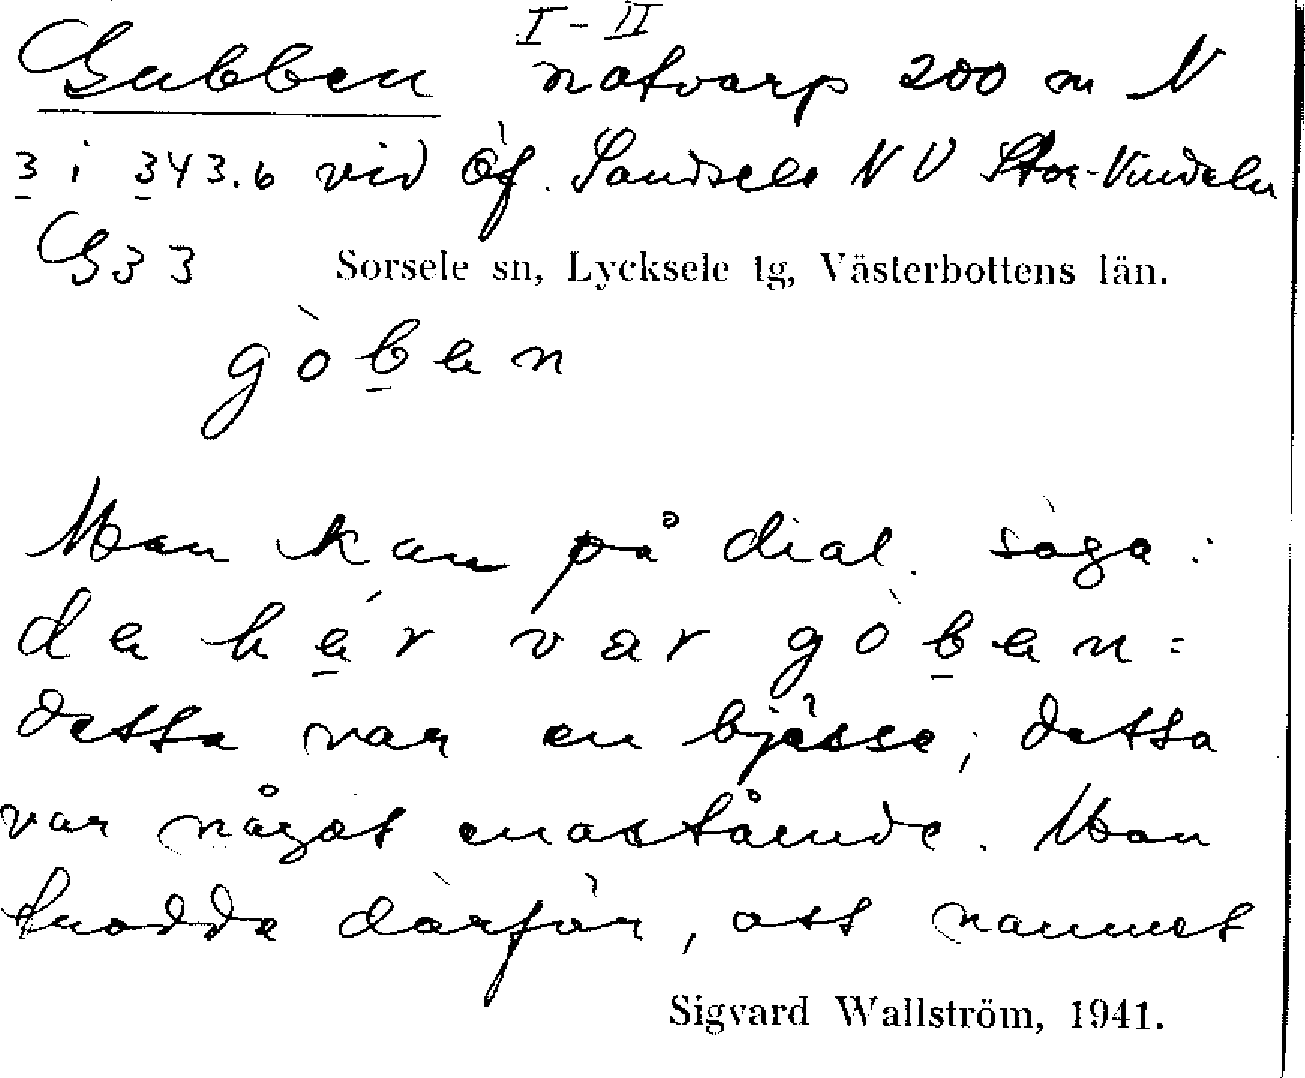 I-II
Gubben notvarp 200 m N
3 i 343.6 vid Öf. Sandsele NV Stor-Vindeln
G33 Sorsele sn, Lycksele lg, Västerbottens län.
gòben
Man kan på dial. säga:
de hér var gòben =
detta var en bjässe; detta
var något enastående. Man
trodde därför, att namnet
Sigvard Wallström, 1941.